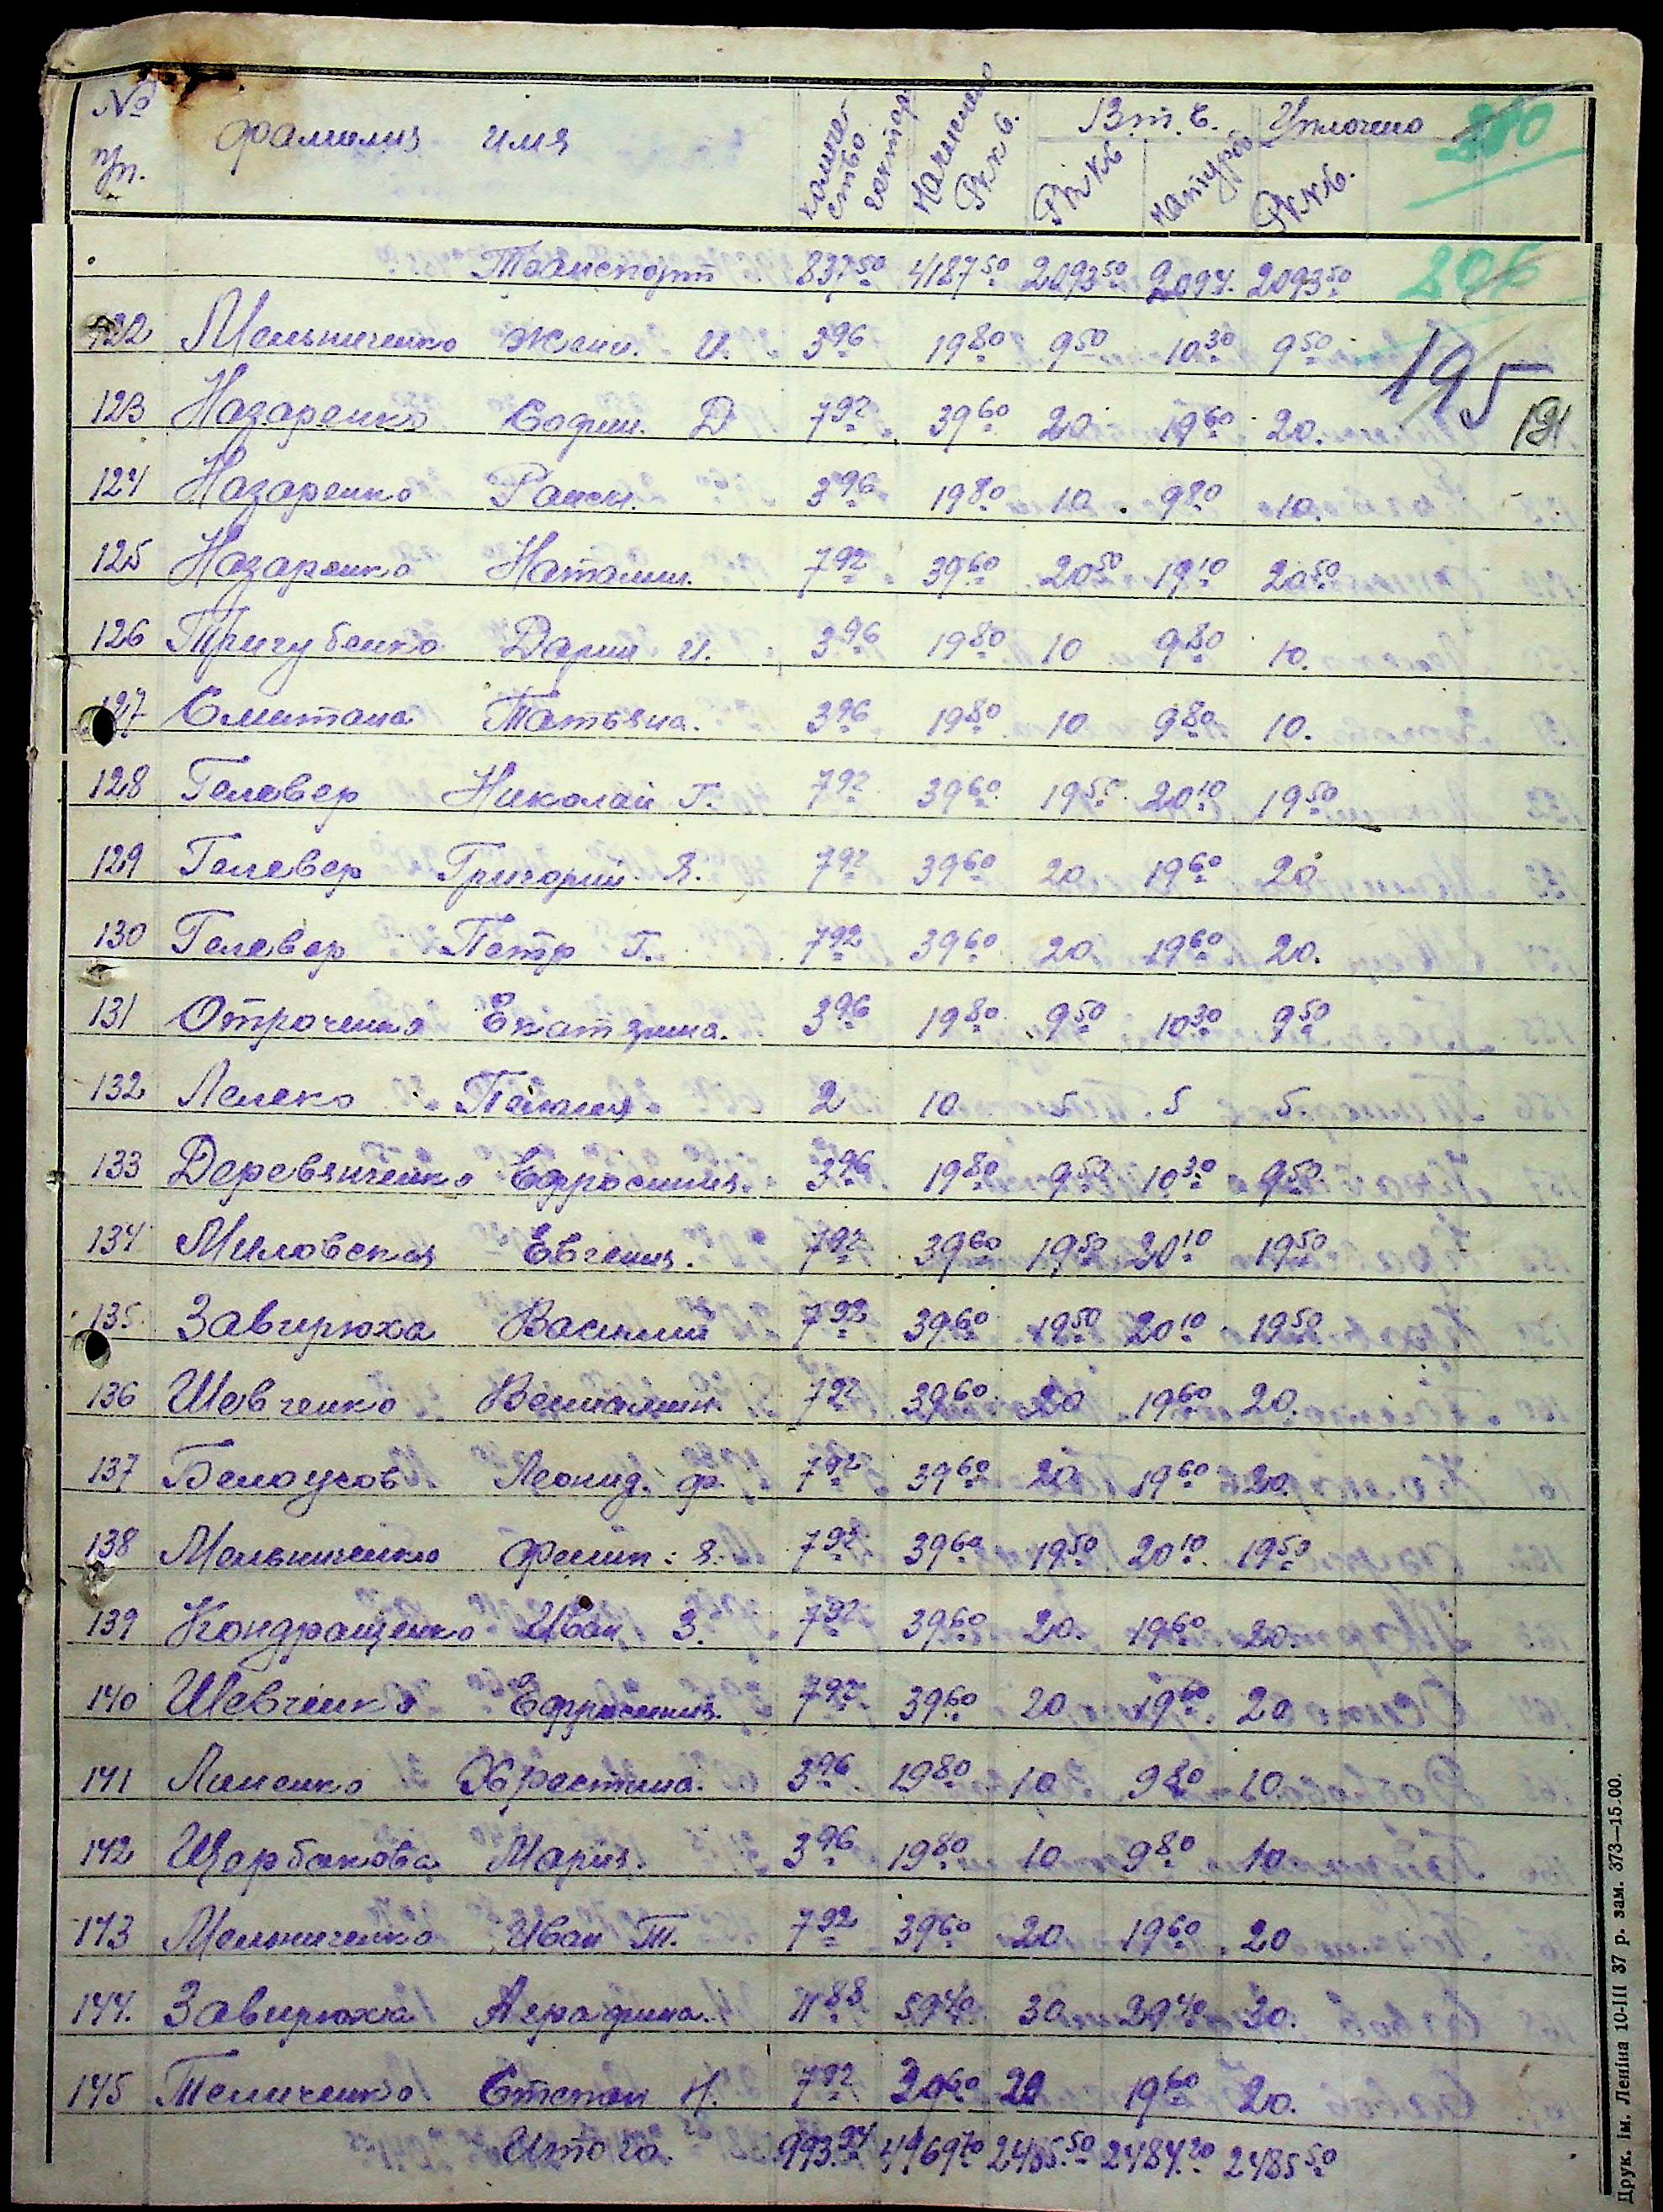 № п/п. фамилия имя количество гектар Начислено Рк.к.б. В т. ч. Ркк.б. натурой Уплочено Рк.к.б. 210
Транспорт 837 50 4187 50 2093 50 2094. 2093 50 206
122 Мельниченко И. 3 96 19 80 9 50 10 30 9 50 195
123 Назаренко Софии. Д 7 92 39 60 20 19 60 20. 191
124 Назаренко Раиси. 3 96 19 80 10 9 80 10.
125 Назаренко Наталии. 7 92 39 60 20 50 19 10 20 50
126 Тригубенко Дарии И. 3 96 19 80 10 9 80 10.
127 Смитана Татьяна. 3 96 19 80 10 9 80 10.
128 Гелевер Николай Г. 7 92 39 60 19 50 20 10 19 50
129 Гелевер Григорий Я. 7 92 39 60 20 19 60 20
130 Гелевер Петр Г. 7 92 39 60 20 19 60 20.
131 Отроченко Екатерина. 3 96 19 80 9 50 10 30 9 50
132 Лелеко 2 10 5 5 5.
133 Деревянченко Ефросиния. 3 96 19 80 9 50 10 30 9 50
134 Миловская Евгения. 7 92 39 60 19 50 20 10 19 50
135 Завирюха Василий 7 92 39 60 19 50 20 10 19 50
136 Шевченко Вениамин 7 92 39 60 20 19 60 20.
137 Белоусов Леонид. ф. 7 92 39 60 20 19 60 20.
138 Мельниченко Филип: Я. 7 92 39 60 19 50 20 10 19 50
139 Кондращенко Иван З. 7 92 39 60 20. 19 60 20.
140 Шевченко Ефросиния. 7 92 39 60 20 19 60 20
141 Линенко Христина. 3 96 19 80 10 9 80 10
142 Щербакова Мария. 3 96 19 80 10 9 80 10
143 Мельниченко Иван Т. 7 92 39 60 20 19 60 20
144. Завирюха Аграфина. 11 88 59 40 30 29 40 30.
145 Теличенко Степан Н. 7 92 39 60 20 19 60 20.
Итого. 993. 94 4969 70 2485. 50 2484. 20 2485 50
Друк. ім. Леніна 10-III 37 р. зам. 373—15.00.